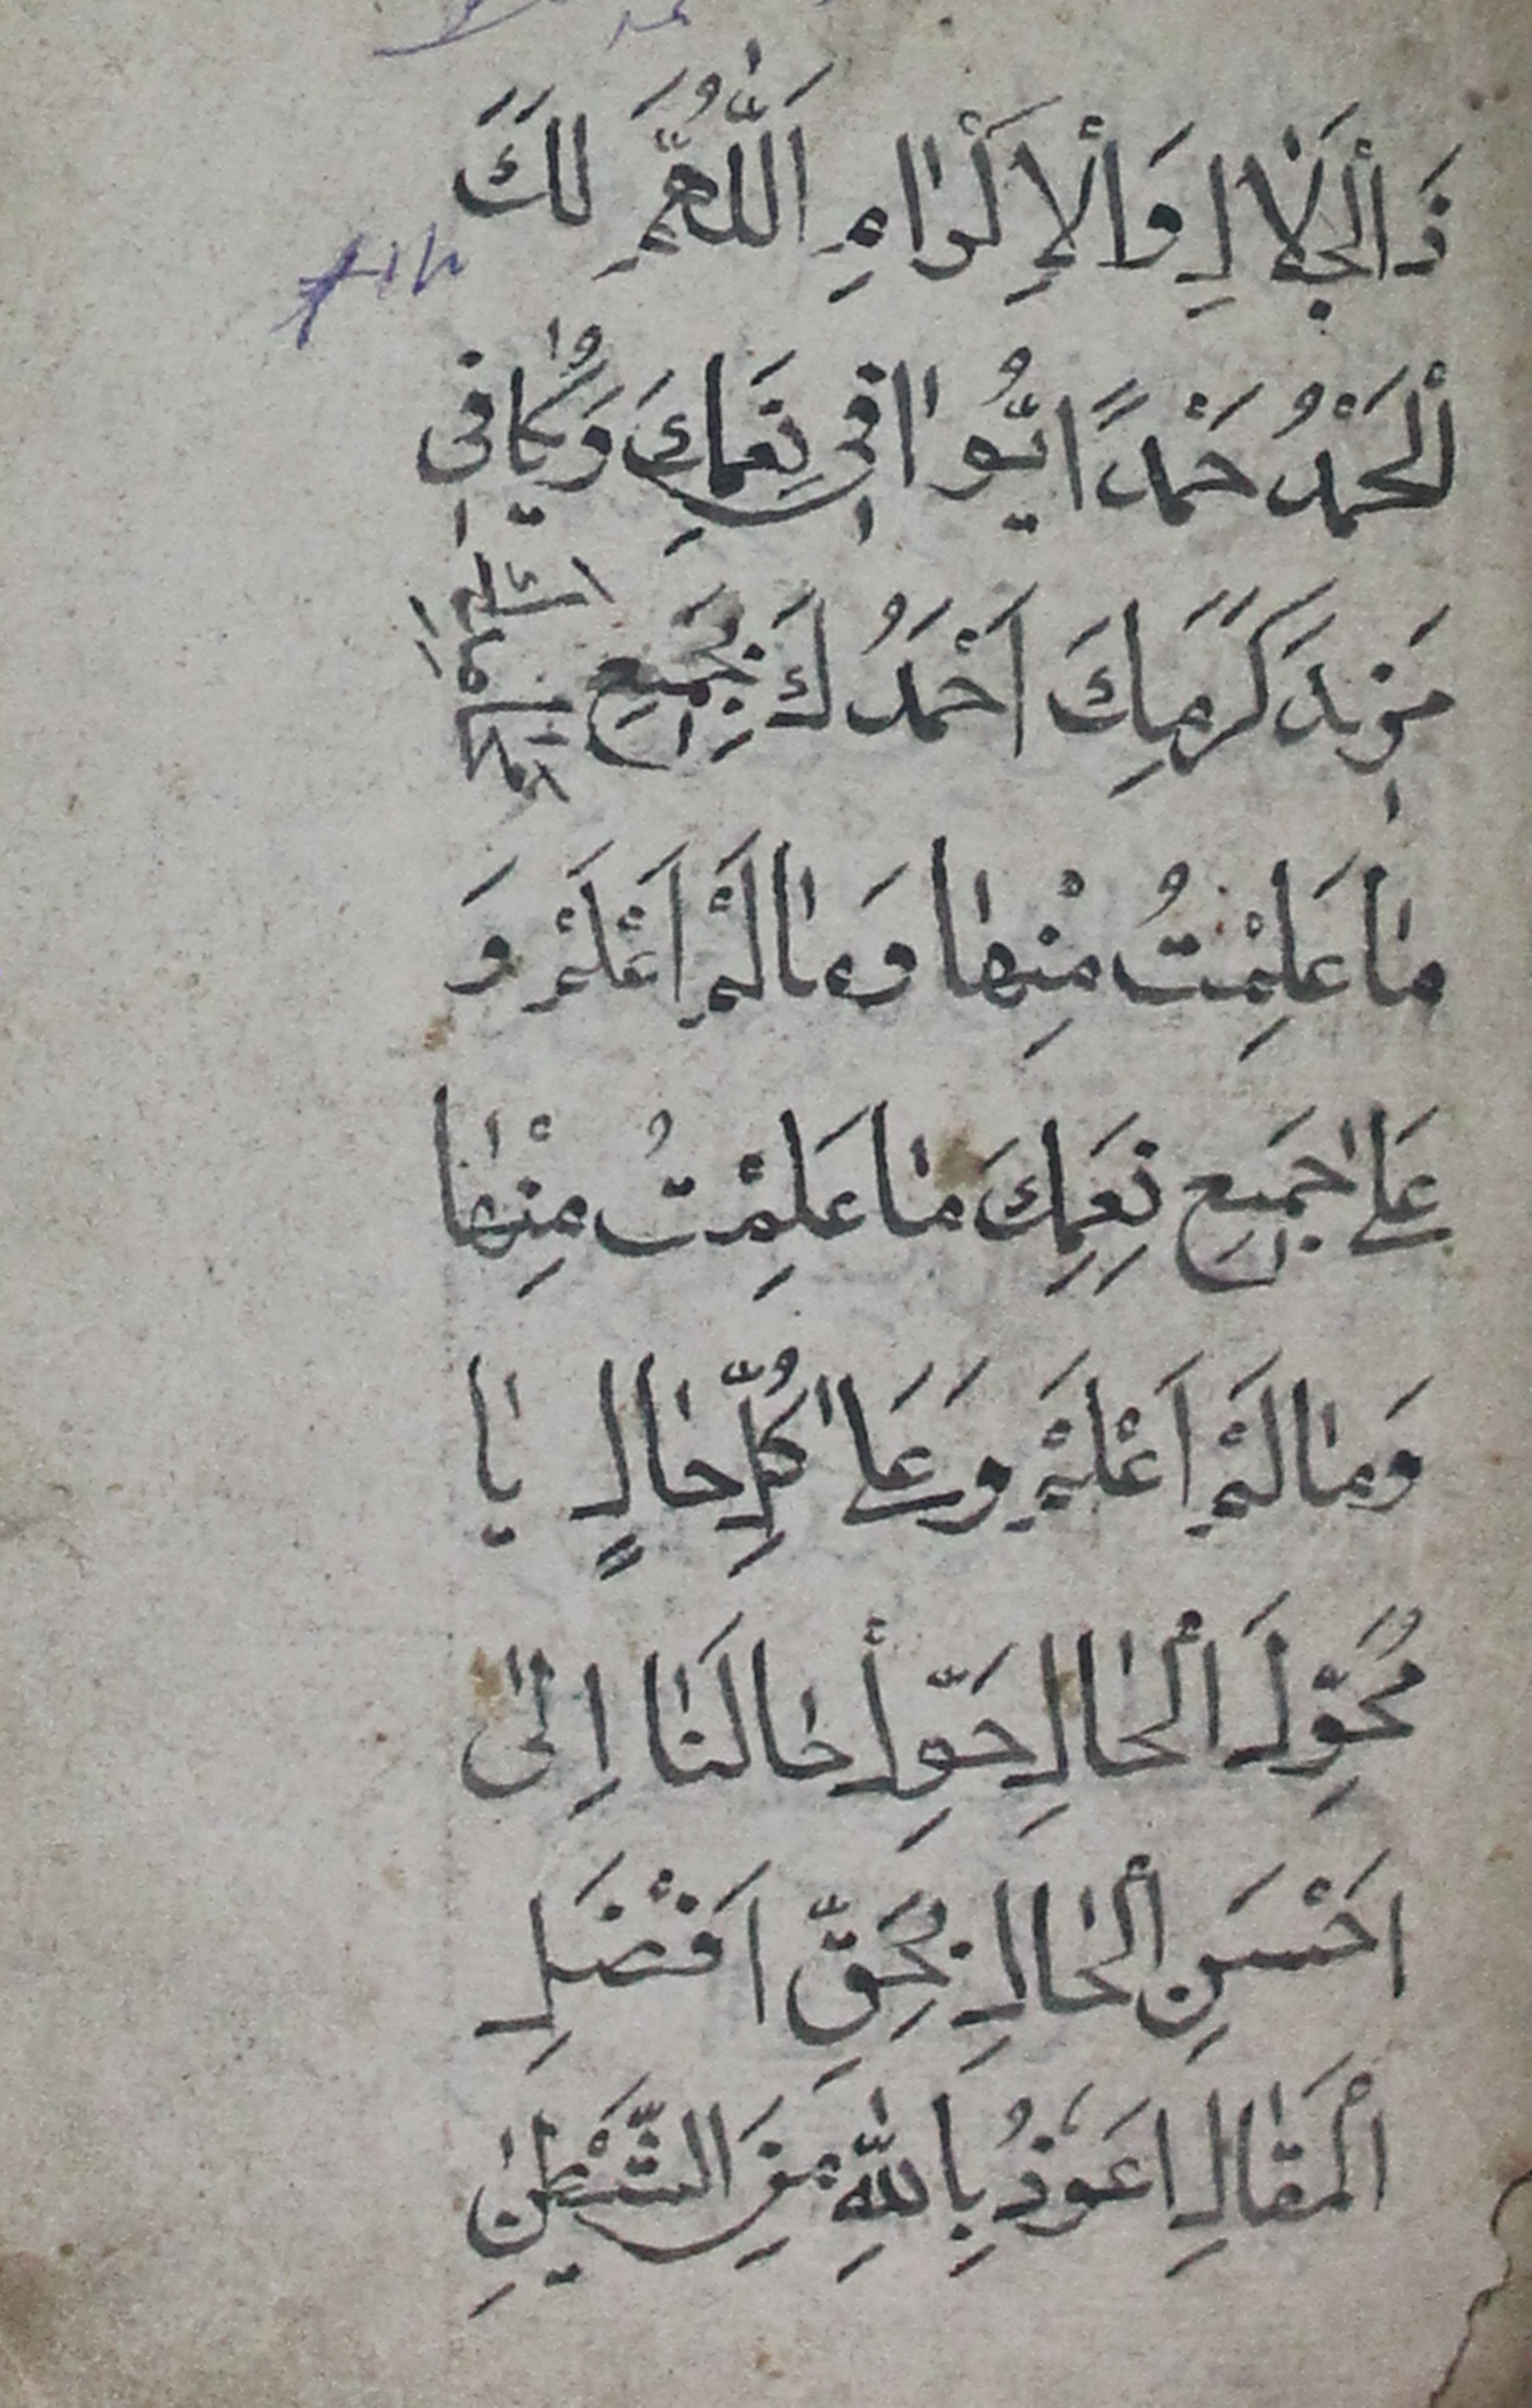 ذَالْجَلَالِ وَالْإِكْرَامِ اَللّٰهُمَّ لَكَ
اَلْحَمْدُ حَمْدًا يُّوَافِي نِعَمَكَ وَيُكَافِي
مَزِيدَ كَرَمِكَ اَحْمَدُكَ بِجَمِيعِ
مَا عَلِمْتُ مِنْهَا وَمَا لَمْ اَعْلَمْ وَ
عَلٰى جَمِيعِ نِعَمِكَ مَا عَلِمْتُ مِنْهَا
وَمَا لَمْ اَعْلَمْ وَعَلٰى كُلِّ حَالٍ يَا
مُحَوِّلَ الْحَالِ حَوِّلْ حَالَنَا اِلٰى
اَحْسَنِ الْحَالِ بِحَقِّ اَفْضَلِ
الْمَقَالِ اَعُوذُ بِاللّٰهِ مِنَ الشَّيْطٰنِ